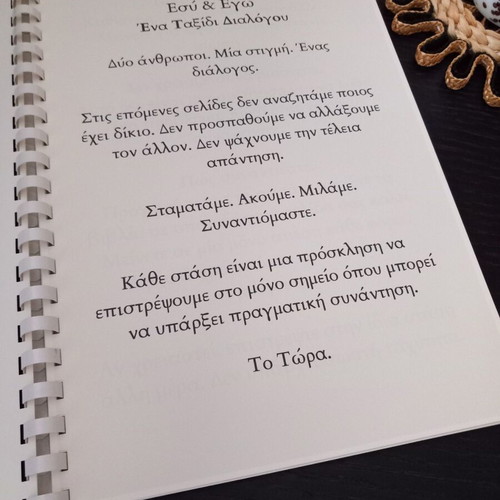 Εσύ & Εγώ
Ένα Ταξίδι Διαλόγου
Δύο άνθρωποι. Μία στιγμή. Ένας
διάλογος.
Στις επόμενες σελίδες δεν αναζητάμε ποιος
έχει δίκιο. Δεν προσπαθούμε να αλλάξουμε
τον άλλον. Δεν ψάχνουμε την τέλεια
απάντηση.
Σταματάμε. Ακούμε. Μιλάμε.
Συναντιόμαστε.
Κάθε στάση είναι μια πρόσκληση να
επιστρέψουμε στο μόνο σημείο όπου μπορεί
να υπάρξει πραγματική συνάντηση.
Το Τώρα.